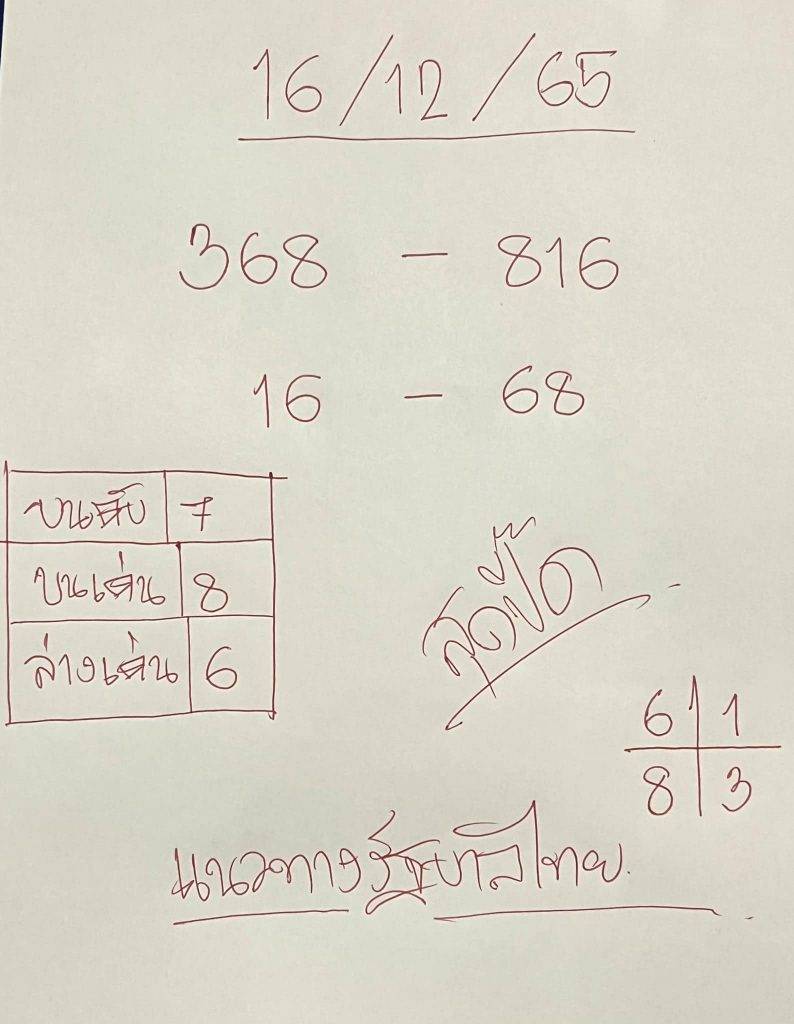 16/12/65
368 - 816
16 - 68
บนดับ 7
บนเด่น 8
ล่างเด่น 6
สุดปี๊ด
6 1
8 3
แนวทางรัฐบาลไทย.